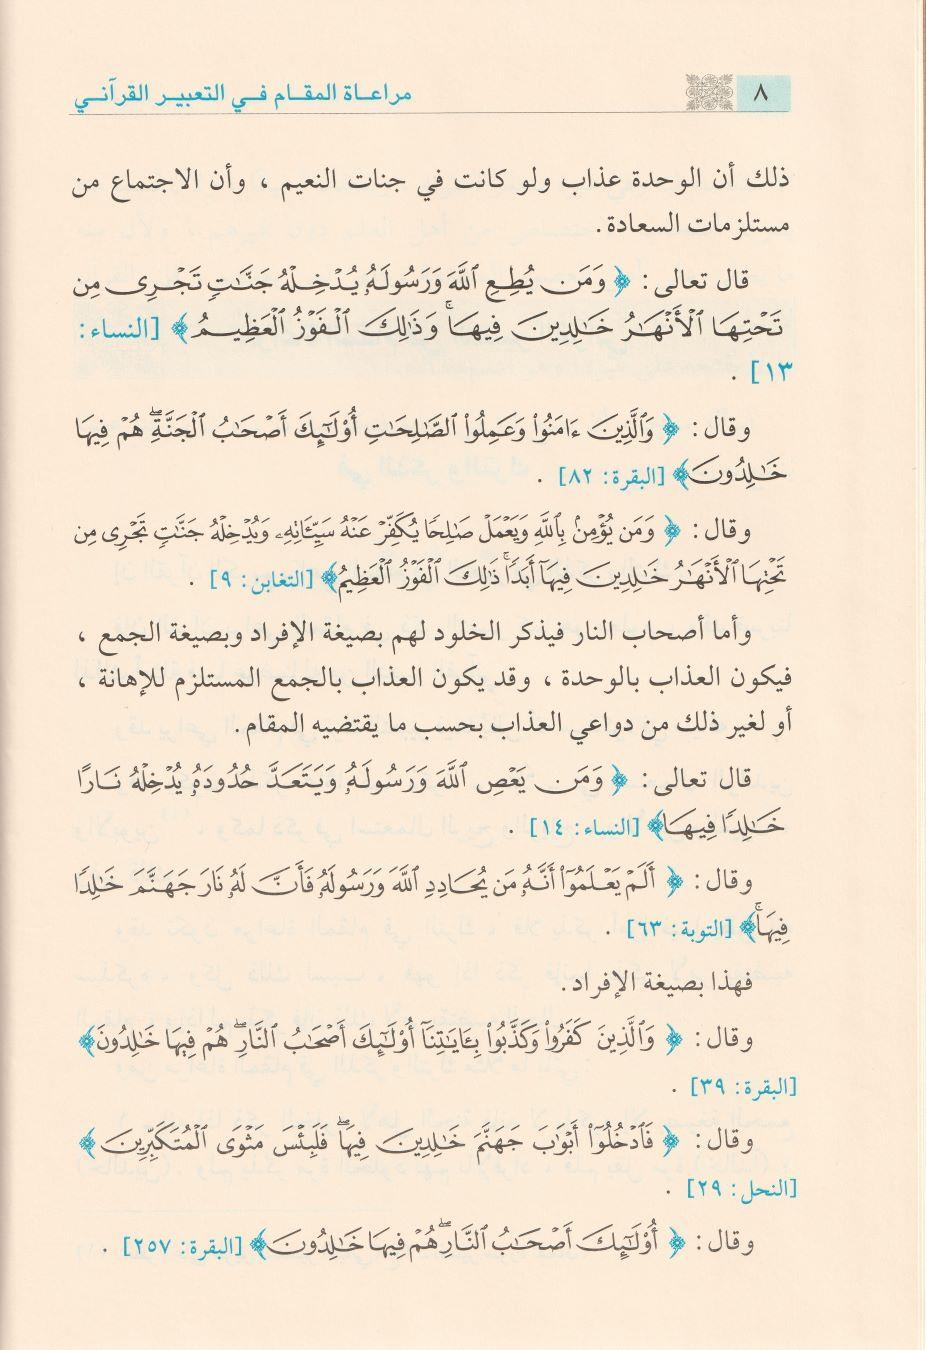 ٨
مراعاة المقام في التعبير القرآني
ذلك أن الوحدة عذاب ولو كانت في جنات النعيم ، وأن الاجتماع من
مستلزمات السعادة .
قال تعالى : ﴿ وَمَن يُطِعِ ٱللَّهَ وَرَسُولَهُۥ يُدۡخِلۡهُ جَنَّٰتٖ تَجۡرِي مِن
تَحۡتِهَا ٱلۡأَنۡهَٰرُ خَٰلِدِينَ فِيهَاۚ وَذَٰلِكَ ٱلۡفَوۡزُ ٱلۡعَظِيمُ ﴾ [النساء :
١٣] .
وقال : ﴿ وَٱلَّذِينَ ءَامَنُواْ وَعَمِلُواْ ٱلصَّٰلِحَٰتِ أُوْلَٰٓئِكَ أَصۡحَٰبُ ٱلۡجَنَّةِۖ هُمۡ فِيهَا
خَٰلِدُونَ﴾ [البقرة : ٨٢] .
وقال : ﴿ وَمَن يُؤۡمِنۢ بِٱللَّهِ وَيَعۡمَلۡ صَٰلِحٗا يُكَفِّرۡ عَنۡهُ سَيِّـَٔاتِهِۦ وَيُدۡخِلۡهُ جَنَّٰتٖ تَجۡرِي مِن
تَحۡتِهَا ٱلۡأَنۡهَٰرُ خَٰلِدِينَ فِيهَآ أَبَدٗاۚ ذَٰلِكَ ٱلۡفَوۡزُ ٱلۡعَظِيمُ﴾ [التغابن : ٩] .
وأما أصحاب النار فيذكر الخلود لهم بصيغة الإفراد وبصيغة الجمع ،
فيكون العذاب بالوحدة ، وقد يكون العذاب بالجمع المستلزم للإهانة ،
أو لغير ذلك من دواعي العذاب بحسب ما يقتضيه المقام .
قال تعالى : ﴿ وَمَن يَعۡصِ ٱللَّهَ وَرَسُولَهُۥ وَيَتَعَدَّ حُدُودَهُۥ يُدۡخِلۡهُ نَارًا
خَٰلِدٗا فِيهَا﴾ [النساء : ١٤] .
وقال : ﴿ أَلَمۡ يَعۡلَمُوٓاْ أَنَّهُۥ مَن يُحَادِدِ ٱللَّهَ وَرَسُولَهُۥ فَأَنَّ لَهُۥ نَارَ جَهَنَّمَ خَٰلِدٗا
فِيهَاۚ﴾ [التوبة : ٦٣] .
فهذا بصيغة الإفراد .
وقال : ﴿ وَٱلَّذِينَ كَفَرُواْ وَكَذَّبُواْ بِـَٔايَٰتِنَآ أُوْلَٰٓئِكَ أَصۡحَٰبُ ٱلنَّارِۖ هُمۡ فِيهَا خَٰلِدُونَ﴾
[البقرة : ٣٩] .
وقال : ﴿ فَٱدۡخُلُوٓاْ أَبۡوَٰبَ جَهَنَّمَ خَٰلِدِينَ فِيهَاۖ فَلَبِئۡسَ مَثۡوَى ٱلۡمُتَكَبِّرِينَ﴾
[النحل : ٢٩] .
وقال : ﴿ أُوْلَٰٓئِكَ أَصۡحَٰبُ ٱلنَّارِۖ هُمۡ فِيهَا خَٰلِدُونَ﴾ [البقرة : ٢٥٧] .